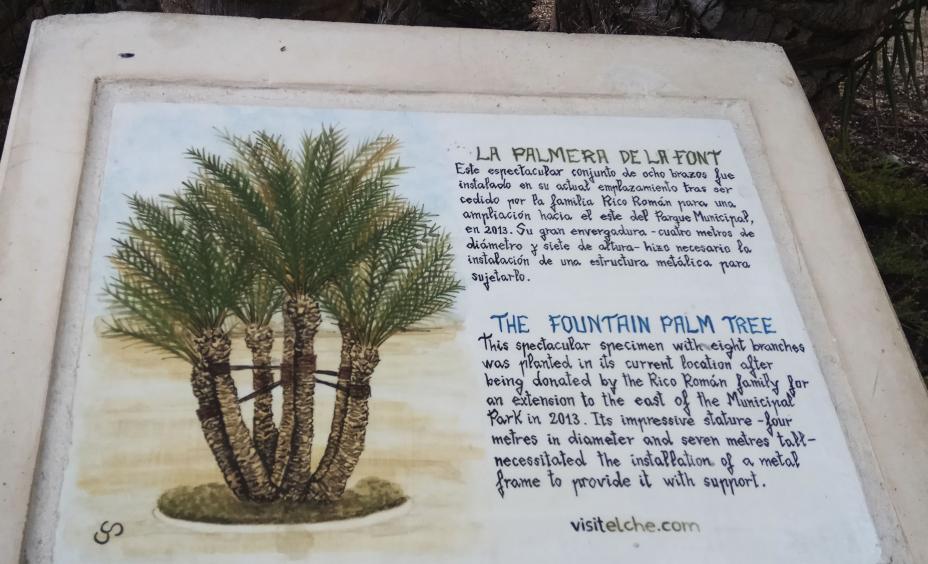 LA PALMERA DE LA FONT
Este espectacular conjunto de ocho brazos fue
instalado en su actual emplazamiento tras ser
cedido por la familia Rico Román para una
ampliación hacia el este del Parque Municipal,
en 2013. Su gran envergadura -cuatro metros de
diámetro y siete de altura- hizo necesario la
instalación de una estructura metálica para
sujetarlo.
THE FOUNTAIN PALM TREE
This spectacular specimen with eight branches
was planted in its current location after
being donated by the Rico Román family for
an extension to the east of the Municipal
Park in 2013. Its impressive stature -four
metres in diameter and seven metres tall-
necessitated the installation of a metal
frame to provide it with support.
visitelche.com